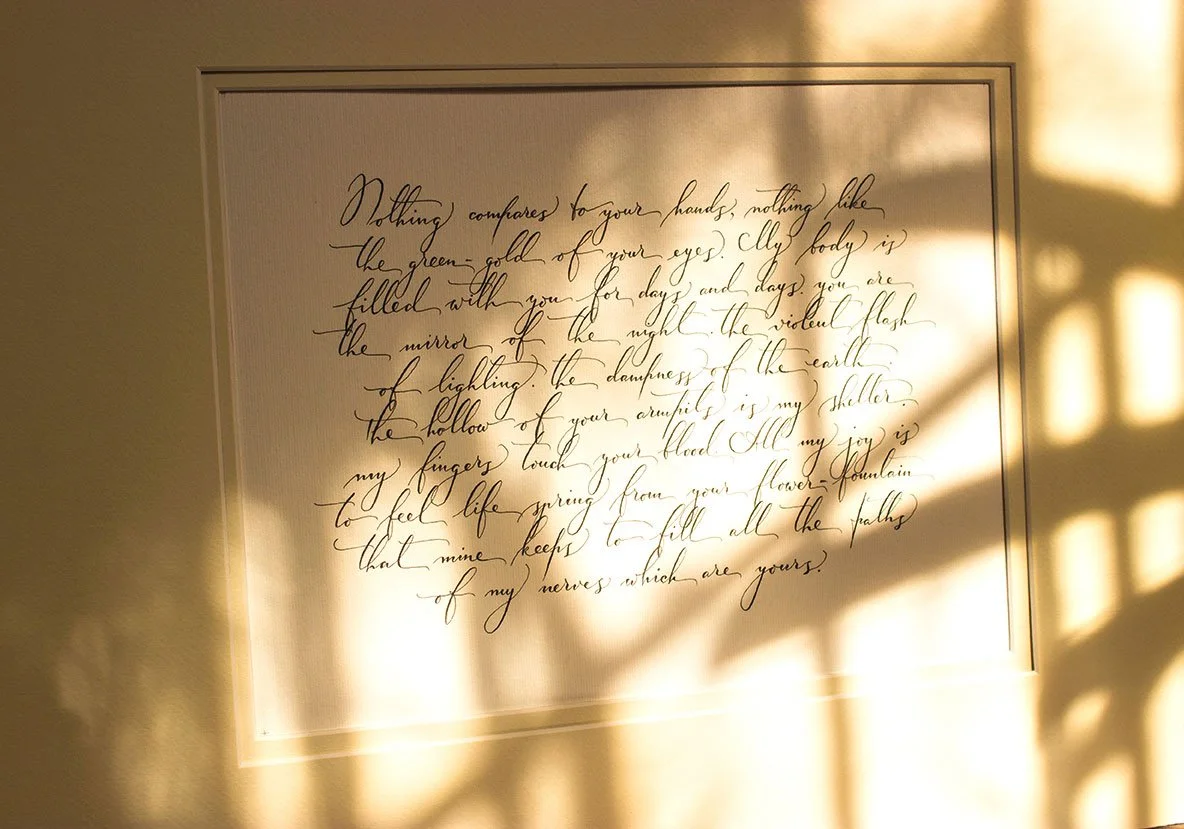 Nothing compares to your hands, nothing like
the green-gold of your eyes. My body is
filled with you for days and days. you are
the mirror of the night. the violent flash
of lighting. the dampness of the earth.
the hollow of your armpits is my shelter.
my fingers touch your blood. All my joy is
to feel life spring from your flower-fountain
that mine keeps to fill all the paths
of my nerves which are yours.